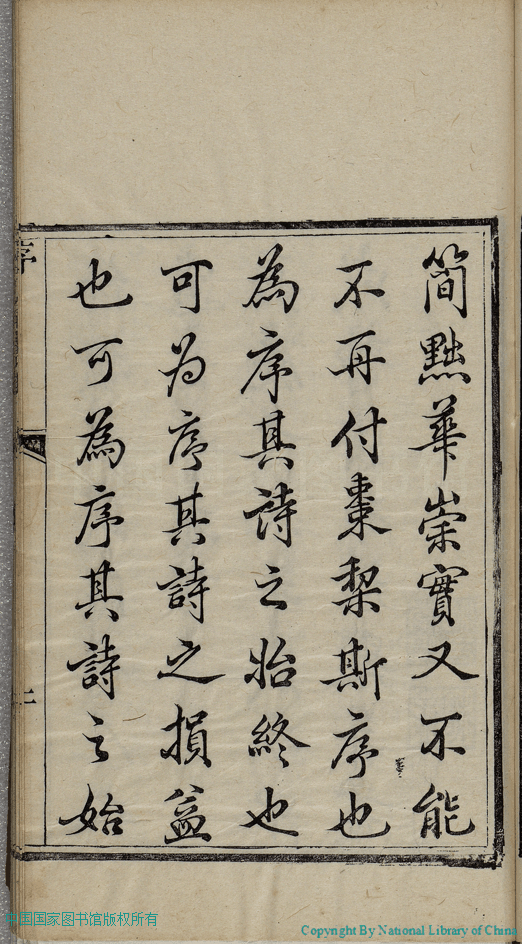 簡黜華崇實又不能
不再付棗棃斯序也
為序其詩之始終也
可为序其詩之損益
也可為序其詩之始
序
中国国家图书馆版权所有
Copyright By National Library of China